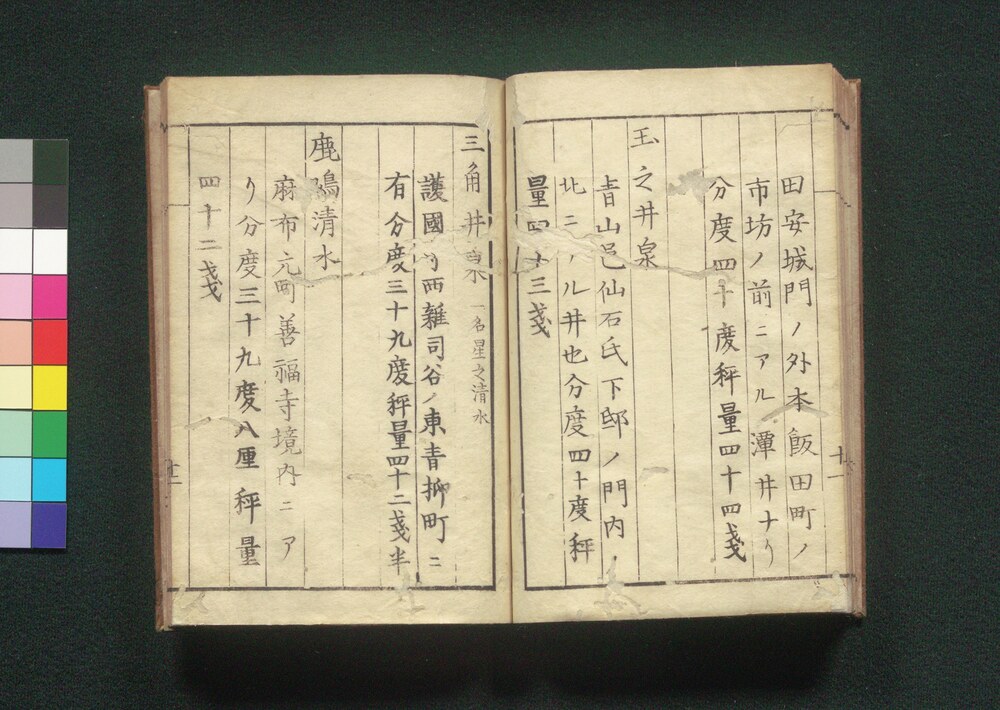 田安城門ノ外本飯田町ノ
市坊ノ前ニアル潭井ナリ
分度四十度秤量四十四戔
玉之井泉
青山邑仙石氏下邸ノ門内ノ
北ニノル井也分度四十度秤
量四十三戔
十一
三角井泉 一名星之清水
護國西雜司谷ノ東青栁町ニ
有分度三十九度秤量四十二戔半
鹿鳴清水
麻布元町善福寺境內ニア
リ分度三十九度八厘秤量
四十二戔
十二